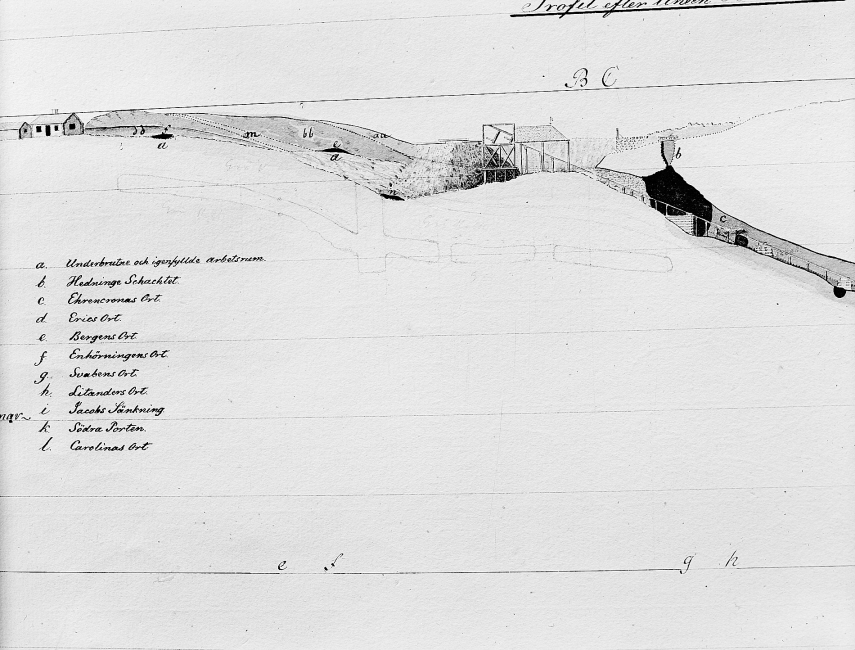 Profil efter Linien
B C
dd m bb aa
a c d n b c
a. Underbrutne och igenfyllde arbetsrum.
b. Hedninge Schachtet.
c Ehrencronas Ort.
d. Erics Ort.
e Bergens Ort
f Enhörningens Ort.
g. Svabens Ort.
h. Litanders Ort.
i Jacobs Sänkning
k. Södra Porten.
l. Carolinas Ort
e f g h